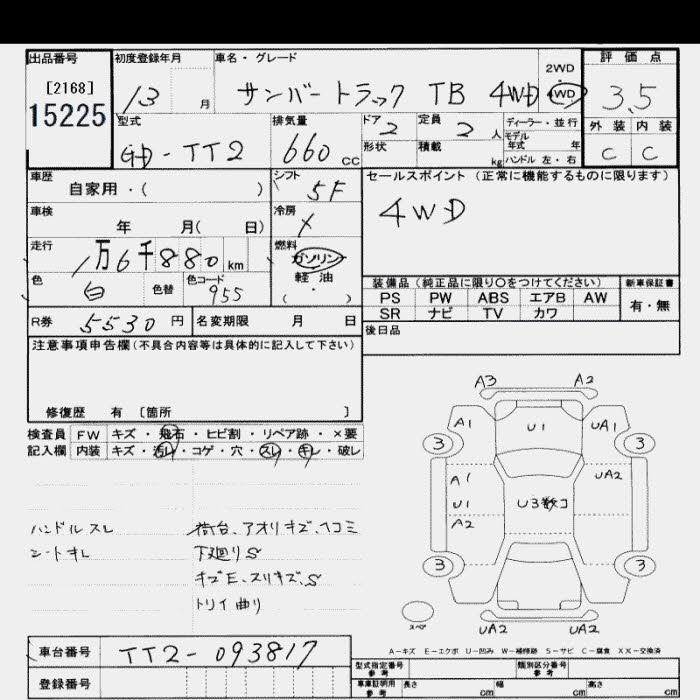 出品番号 初度登録年月 車名・グレード 評価点
[2168]
15225
13 月 サンバートラック TB 4WD 2WD・4WD 3.5
型式 排気量 ドア 定員 ディーラー・並行 外装 内装
GD-TT2 660 cc 2 2 人 モデル年式 年
形状 積載 kg ハンドル 左・右 C C
車歴 シフト セールスポイント (正常に機能するものに限ります)
自家用・( ) 5F
4WD
車検 冷房
年 月( 日) ×
走行 燃料
1万6千880km ガソリン
軽油
( )
色 色替 色コード
白 955
装備品 (純正品に限り○をつけてください) 新車保証書
PS PW ABS エアB AW 有・無
SR ナビ TV カワ
R券 5530円 名変期限 月 日
後日品
注意事項申告欄(不具合内容等は具体的に記入して下さい)
修復歴 有 [箇所 ]
検査員 FW キズ・飛石・ヒビ割・リペア跡・×要
記入欄 内装 キズ・汚レ・コゲ・穴・スレ・キレ・破レ
ハンドルスレ
荷台、アオリキズ、ヘコミ
下廻りS
キズE、スリキズ、S
トリイ曲り
A3 A2
A1 U1 UA1
3 3
A1 UA2
U1 U3数コ
A2
3 3
スペア UA2 UA2
A-キズ E-エクボ U-凹み W-補修跡 S-サビ C-腐食 XX-交換済
車台番号 TT2-093817
登録番号
型式指定番号 参考 類別区分番号 参考
車庫証明用 参考 長さ cm 幅 cm 高さ cm